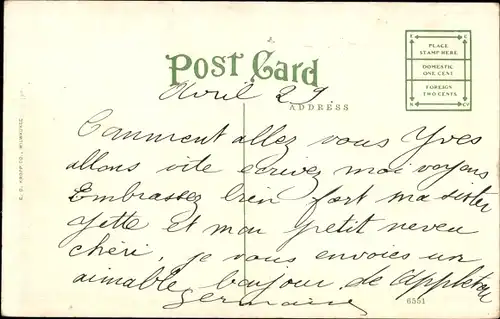 POST CARD
E C
PLACE
STAMP HERE
DOMESTIC
ONE CENT
FOREIGN
TWO CENTS
N CY
Avril 29
ADDRESS
Comment allez vous Yves
allons vite écrivez moi voyons
Embrassez bien fort ma sister
Yette et mon petit neveu
chéri, je vous envoies un
aimable bonjour de Appleton
Germaine
E. C. KROPP CO., MILWAUKEE
6551